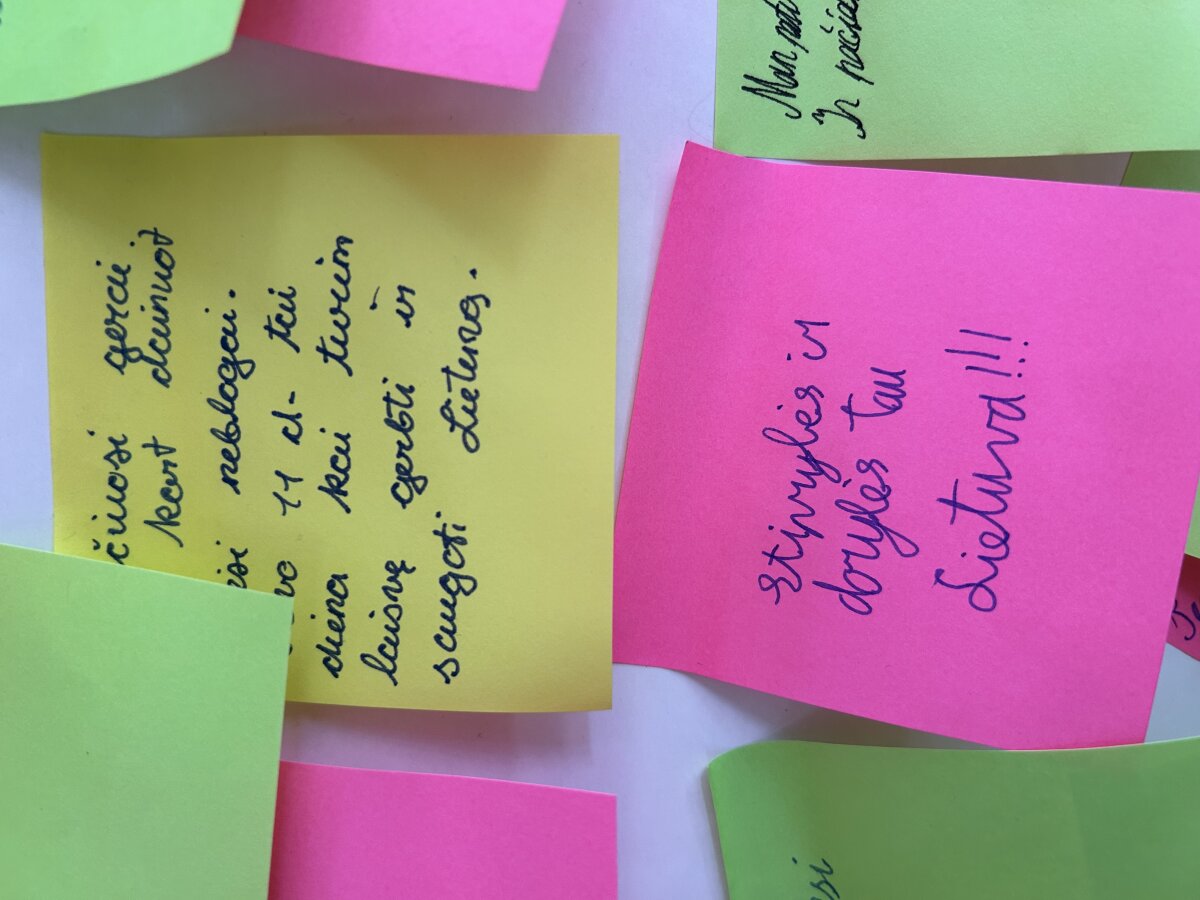 čiuosi gerai
kart dainuot
esi neblogai.
vo 11 d- tai
diena kai turim
laisvę gerbti ir
saugoti Lietuvą.
Stiprybės ir
dorybės tau
Lietuva!!!
Man pat
Ir pačia